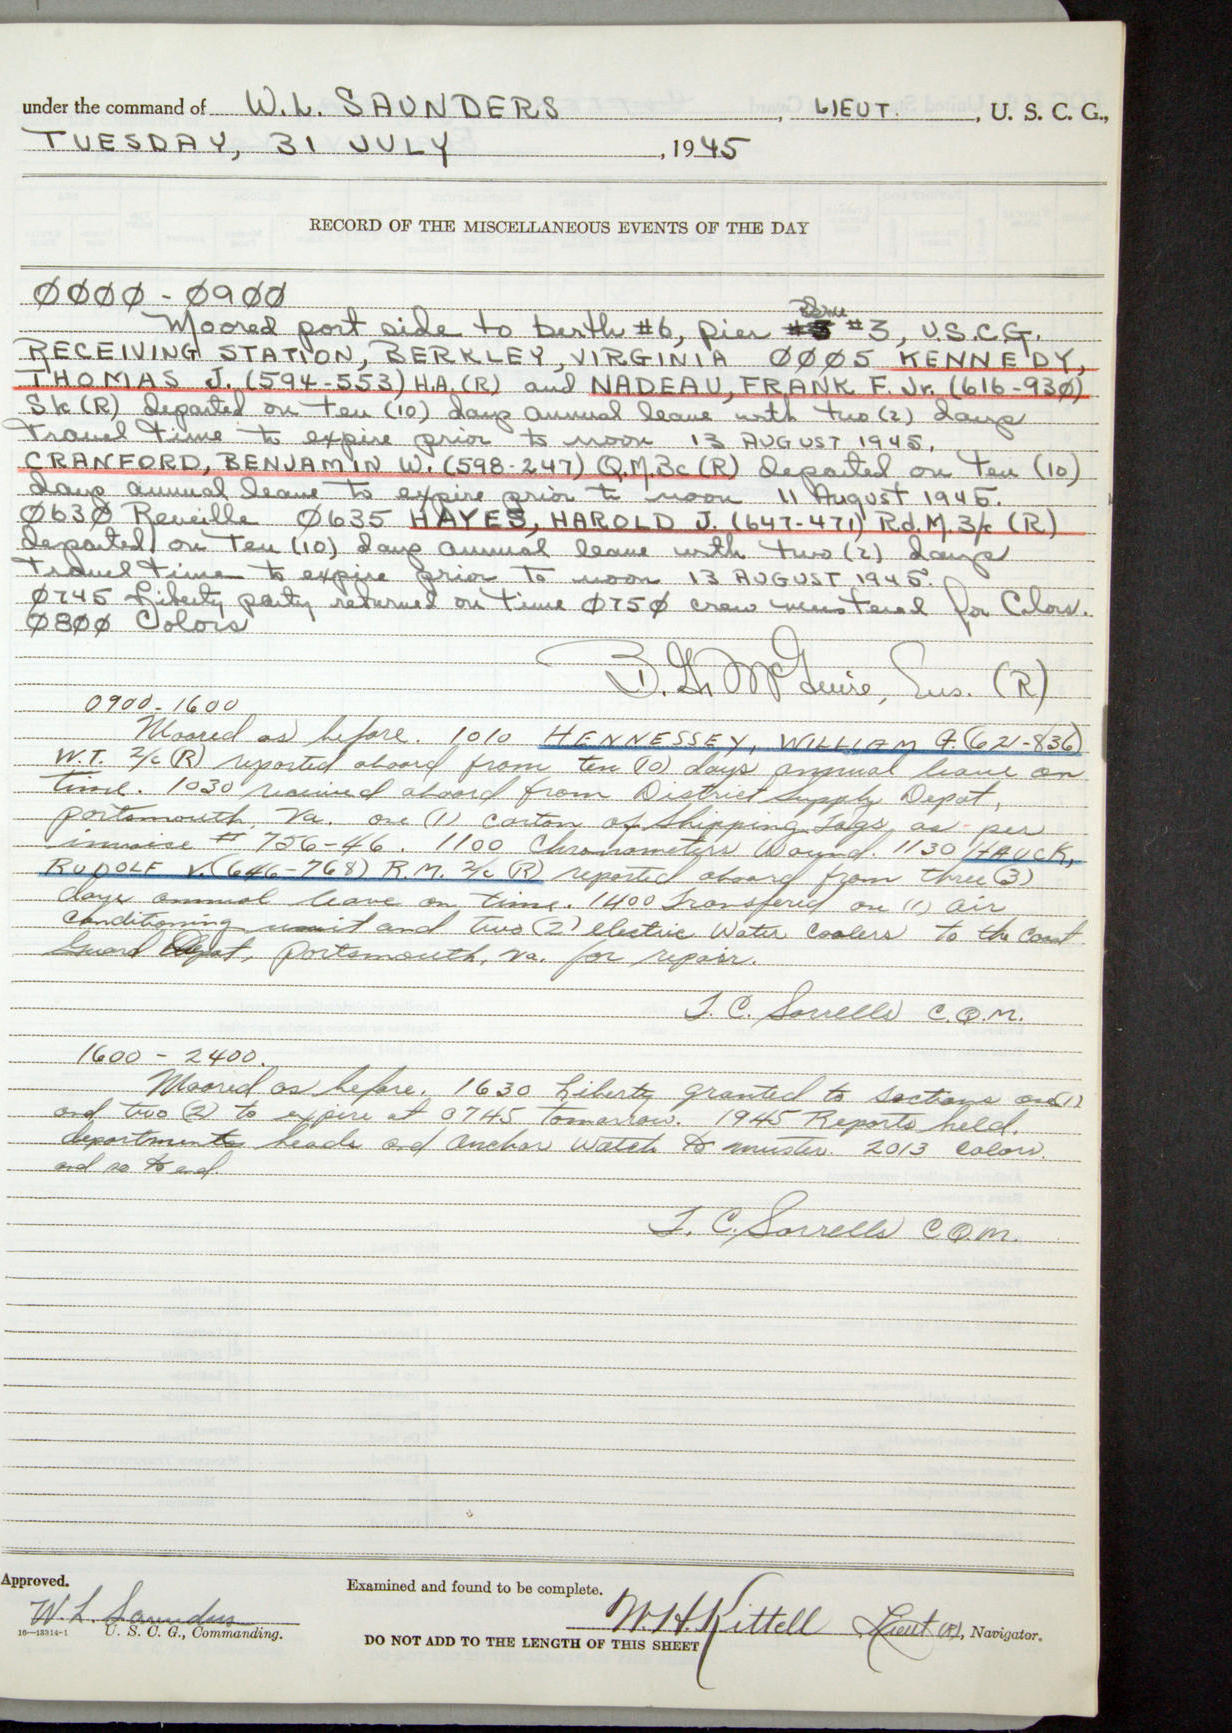 under the command of W. L. SAUNDERS, LIEUT., U. S. C. G.,
TUESDAY, 31 JULY, 1945
RECORD OF THE MISCELLANEOUS EVENTS OF THE DAY
0000 - 0900
Moored port side to berth #6, pier #3, U.S.C.G.
RECEIVING STATION, BERKLEY, VIRGINIA 0005 KENNEDY,
THOMAS J. (594-553) H.A. (R) and NADEAU, FRANK F. Jr. (616-930)
Sk (R) departed on Ten (10) days annual leave with two (2) days
travel time to expire prior to noon 13 AUGUST 1945.
CRANFORD, BENJAMIN W. (598-247) Q.M.3c (R) departed on Ten (10)
days annual leave to expire prior to noon 11 August 1945.
0630 Reveille 0635 HAYES, HAROLD J. (647-471) Rd.M. 3/c (R)
departed on Ten (10) days annual leave with two (2) days
travel time to expire prior to noon 13 AUGUST 1945.
0745 Liberty party returned on time 0750 crew mustered for Colors.
0800 Colors
B. G. McGuire, Ens. (R)
0900-1600
Moored as before. 1010 HENNESSEY, WILLIAM F. (621-836)
W.T. 2/c (R) reported aboard from ten (10) days annual leave on
time. 1030 received aboard from District Supply Depot,
Portsmouth, Va. one (1) carton of Shipping Tags, as per
invoice # 756-46. 1100 Chronometers Wound. 1130 HAUCK,
RUDOLF V. (646-768) R.M. 2/c (R) reported aboard from three (3)
days annual leave on time. 1400 Transfered on (1) air
conditioning unit and two (2) electric Water Coolers to the Coast
Guard Depot, Portsmouth, Va. for repair.
T. C. Sorrells C.Q.M.
1600 - 2400.
Moored as before. 1630 Liberty granted to sections one (1)
and two (2) to expire at 0745 tomorrow. 1945 Reports held.
departments heads and anchor watch to muster. 2013 Colors.
and so to end.
T. C. Sorrells C.Q.M.
Approved.
Examined and found to be complete.
W. L. Saunders
W. H. Kittell Lieut (R), Navigator.
16—13314-1 U. S. C. G., Commanding.
DO NOT ADD TO THE LENGTH OF THIS SHEET